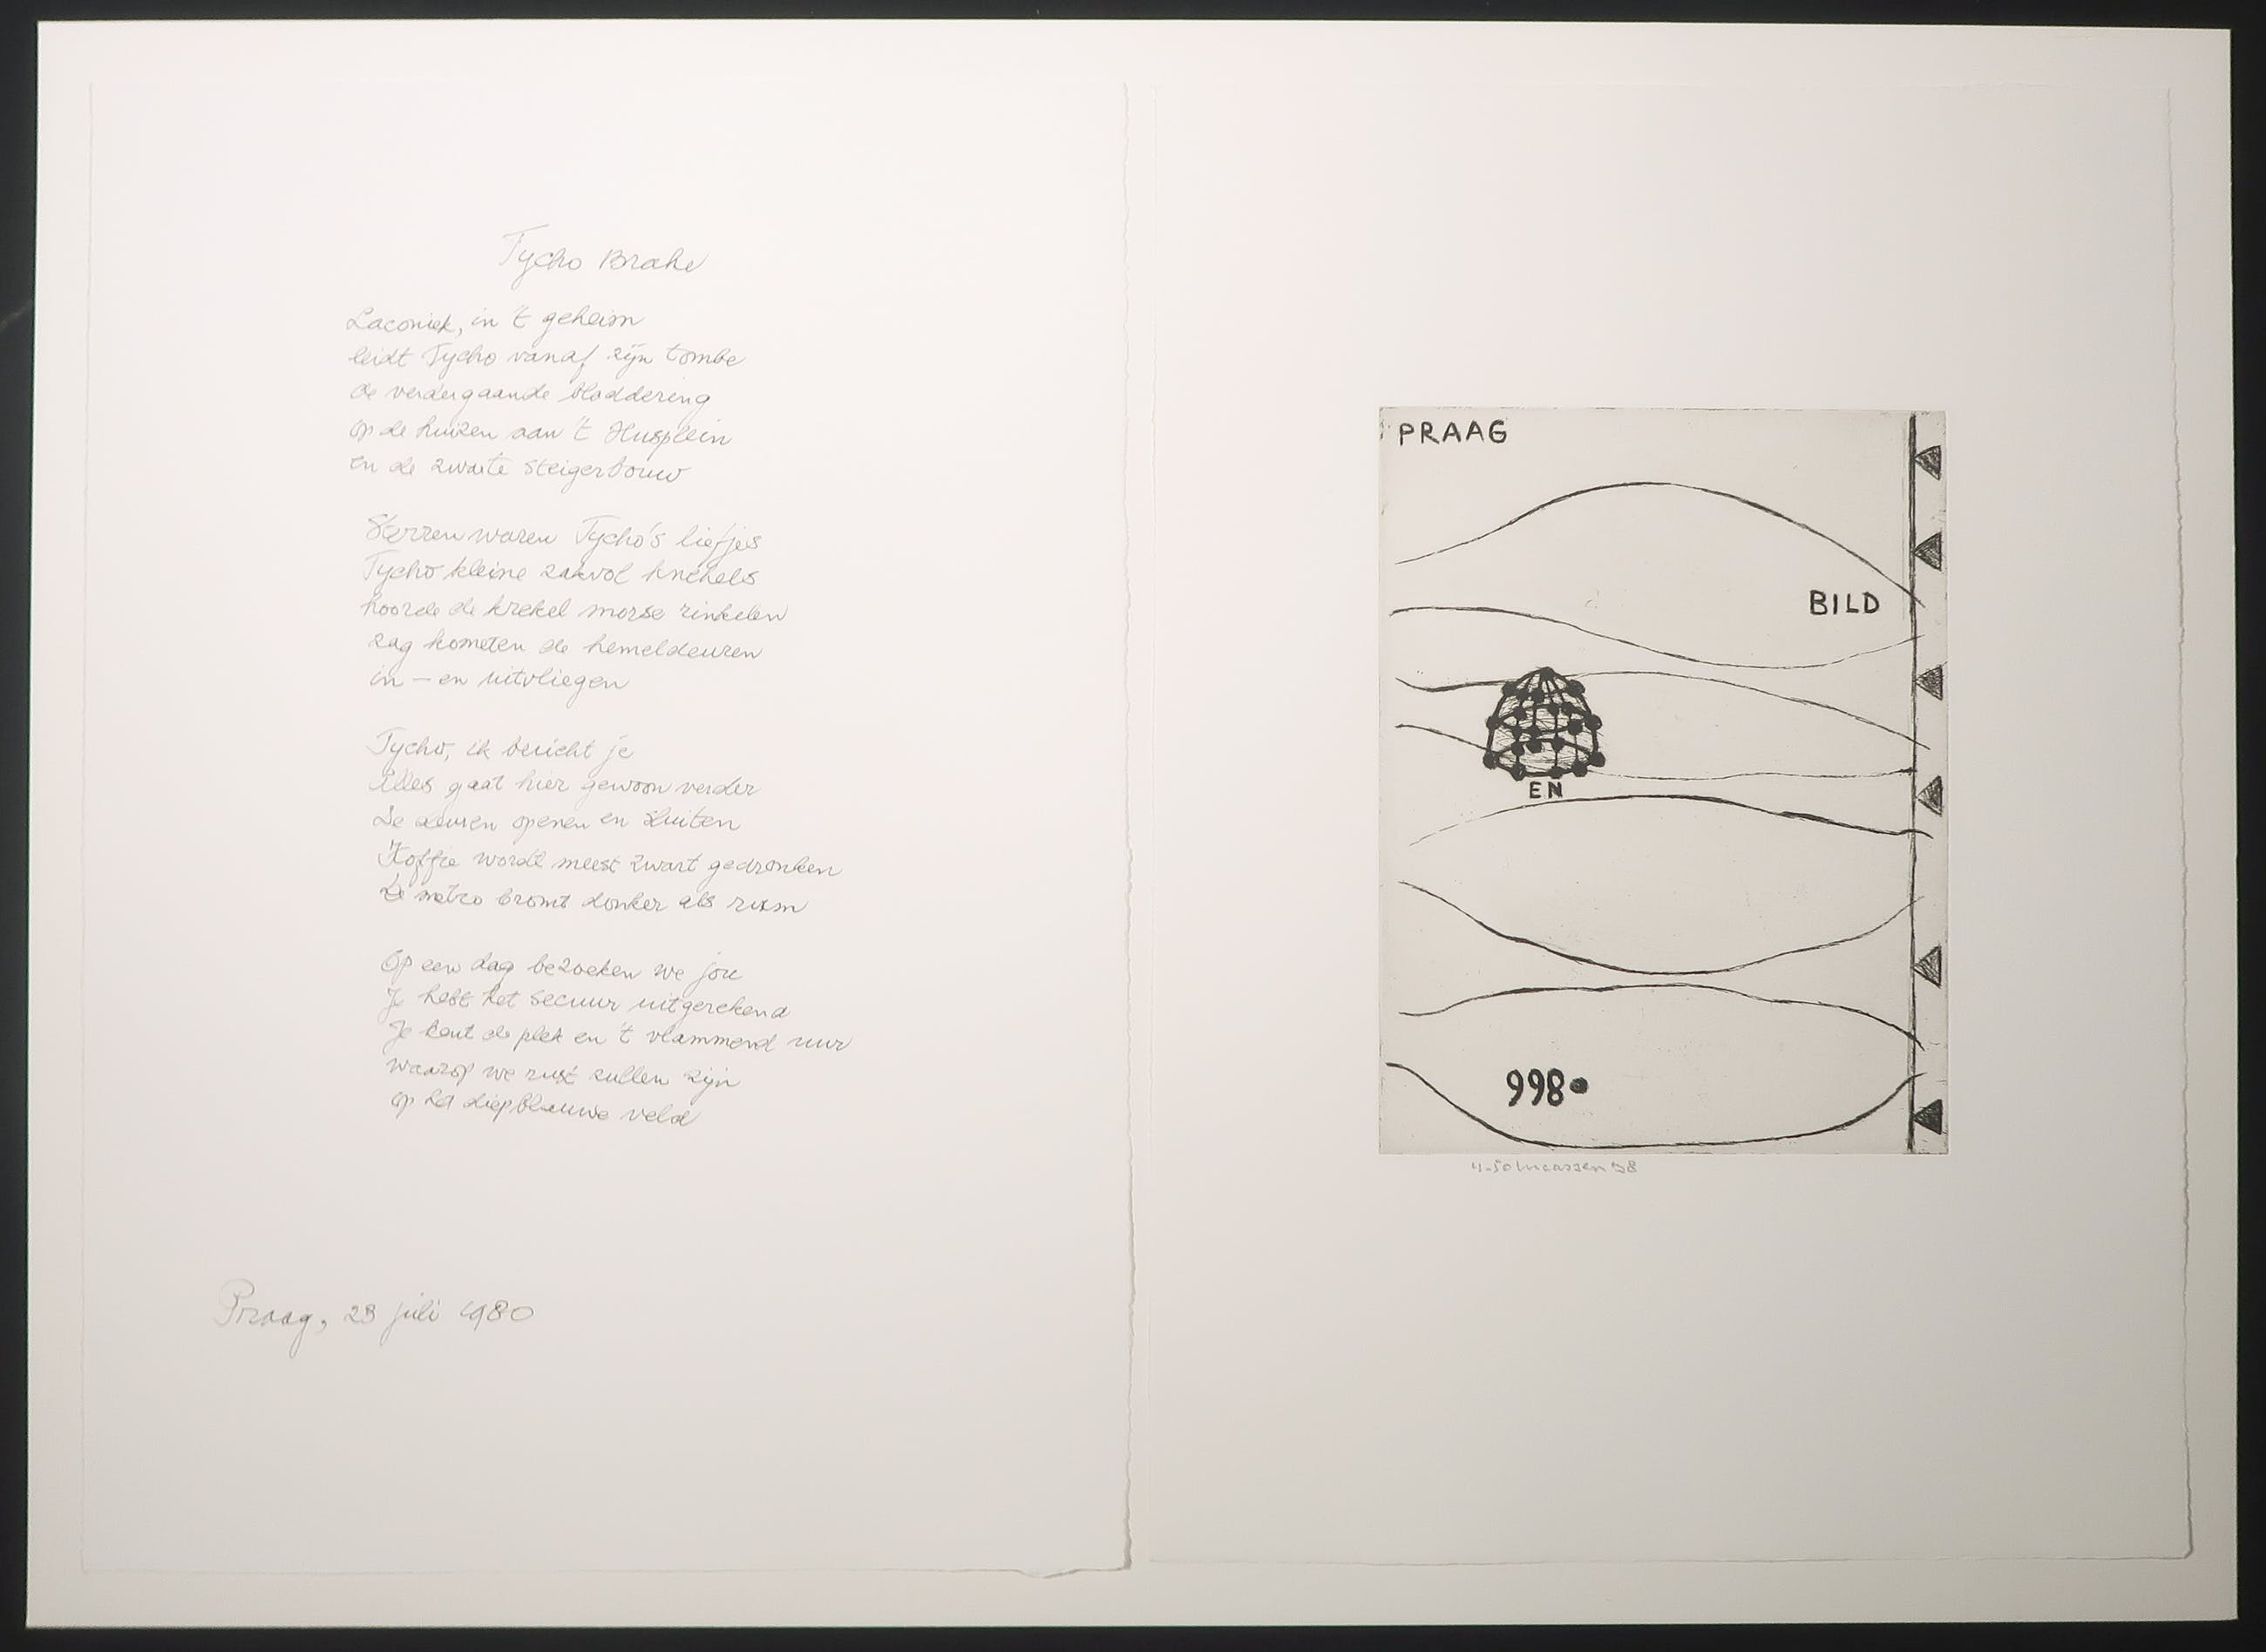 Tycho Brahe
Laconiek, in 't geheim
leidt Tycho vanaf zijn tombe
de verdergaande bloddering
op de huizen aan 't Husplein
en de zwarte steigerbouw
Sterren waren Tycho's liefjes
Tycho kleine zakvol knekels
hoorde de krekel morse rinkelen
zag kometen de hemeldeuren
in – en uitvliegen
Tycho, ik bericht je
Alles gaat hier gewoon verder
De deuren openen en sluiten
Koffie wordt meest zwart gedronken
De metro bromt donker als rum
Op een dag bezoeken we jou
Je hebt het secuur uitgerekend
Je kent de plek en 't vlammend uur
waarop we rust zullen zijn
op het diepblauwe veld
Praag, 23 juli 1980
PRAAG
BILD
EN
998
4-50 Lucassen 98